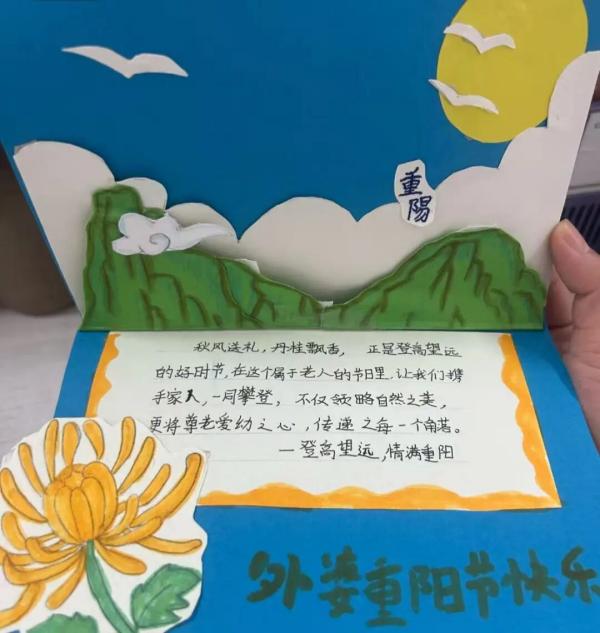 重
陽
秋风送礼，丹桂飘香， 正是登高望远
的好时节，在这个属于老人的节日里，让我们携
手家人，一同攀登，不仅领略自然之美，
更将尊老爱幼之心，传递之每一个角落。
一登高望远，情满重阳
外婆重阳节快乐